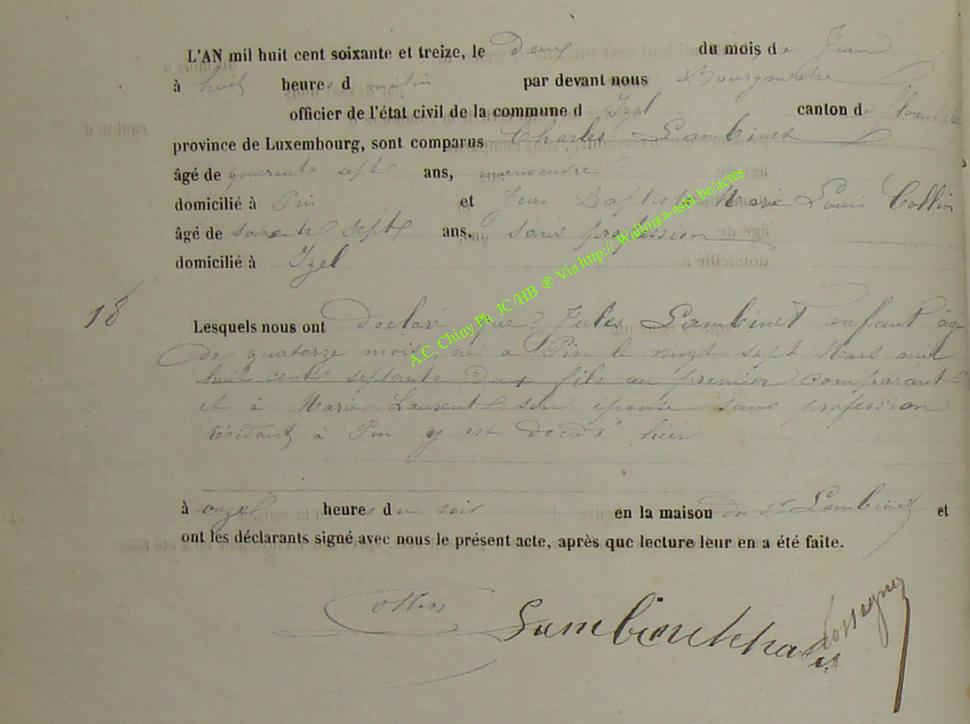 L'AN mil huit cent soixante et treize, le deux du mois de Juin
à huit heures d matin par devant nous Bourgmestre
officier de l'état civil de la commune d Izel canton de
province de Luxembourg, sont comparus Charles Lambinet
âgé de quarente sept ans, manoeuvre
domicilié à Pin et Jean Baptiste Marie Louis Collin
âgé de soixante sept ans, sans profession
domicilié à Izel
18
Lesquels nous ont déclaré que Jules Lambinet enfant âgé
de quatorze mois né a Pin le vingt sept Mars mil
huit cent septante deux fils au premier comparant
et à Marie Laurent son épouse sans profession
résidant à Pin y est décédé hier
à onze heures du soir en la maison du Sr Lambinet et
ont les déclarants signé avec nous le présent acte, après que lecture leur en a été faite.
Collin
Lambinet Charles
A.C. Chiny Ph JC/HB ® Via http:// Wallonia-asbl.be/actes